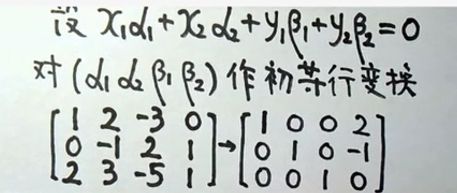 设 x₁α₁+x₂α₂+y₁β₁+y₂β₂=0
对(α₁ α₂ β₁ β₂)作初等行变换
[1 2 -3 0] [1 0 0 2]
[0 -1 2 1]→[0 1 0 -1]
[2 3 -5 1] [0 0 1 0]